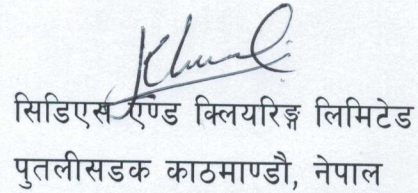 सिडिएस एण्ड क्लियरिङ्ग लिमिटेड
पुतलीसडक काठमाण्डौ, नेपाल